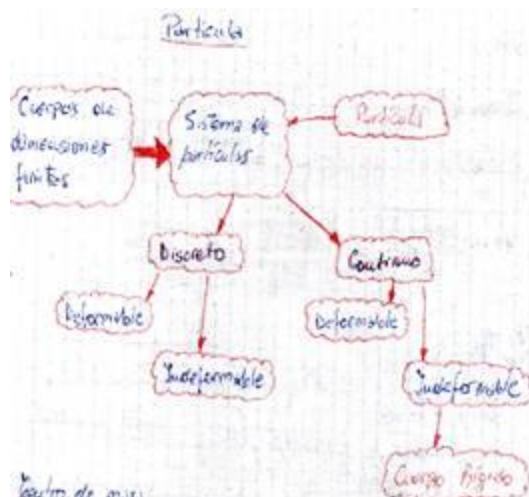 Partícula
Cuerpos de
dimensiones
finitas
Sistema de
partículas
Discreto
Continuo
Deformable
Deformable
Indeformable
Indeformable
Cuerpo Rígido
Centro de